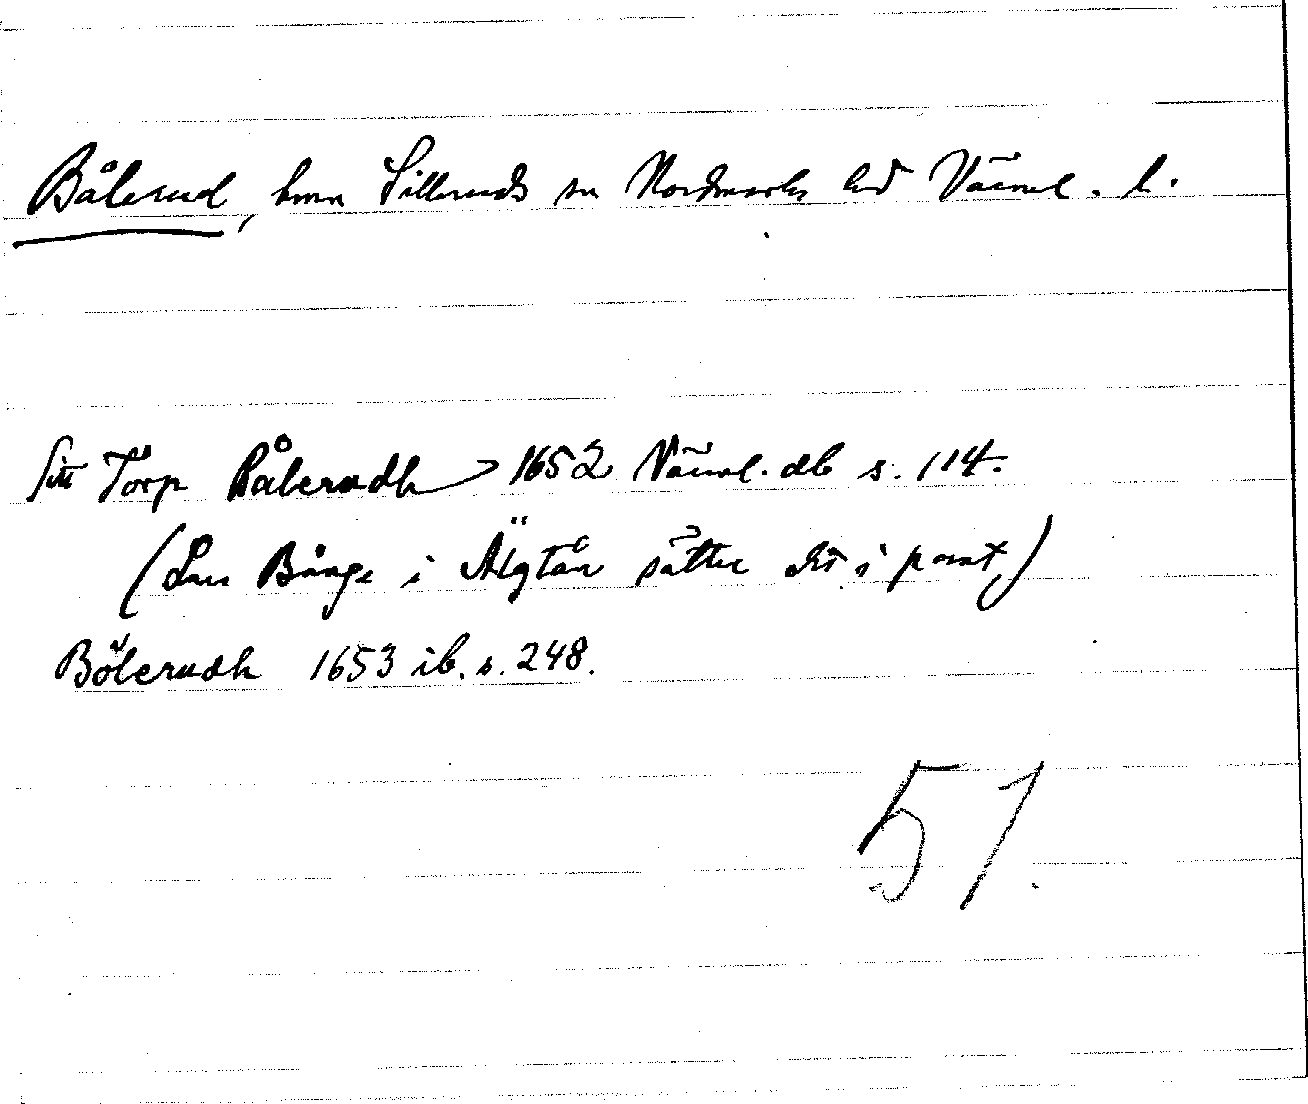 Bålerud, hmn Silleruds sn Nordmarks hd Värml. l.
sitt Torp Bålerudh 1652 Värml. db s. 114.
(Lars Bånge i Älgtån sätter det i pant)
Bölerudh 1653 ib. s. 248.
51.